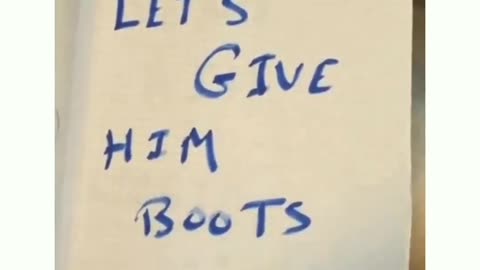 LET'S
GIVE
HIM
BOOTS